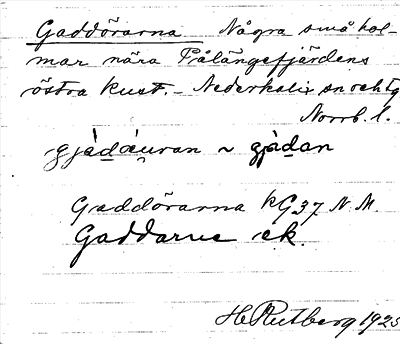 Gaddörarna Några små hol-
mar nära Pålängefjärdens
östra kust. – Nederkalix sn och tg
Norrb. l.
gjàdáuran ~ gjàdan
Gaddörarna kG37 N.M.
Gaddarne ek.
H Rutberg 1925